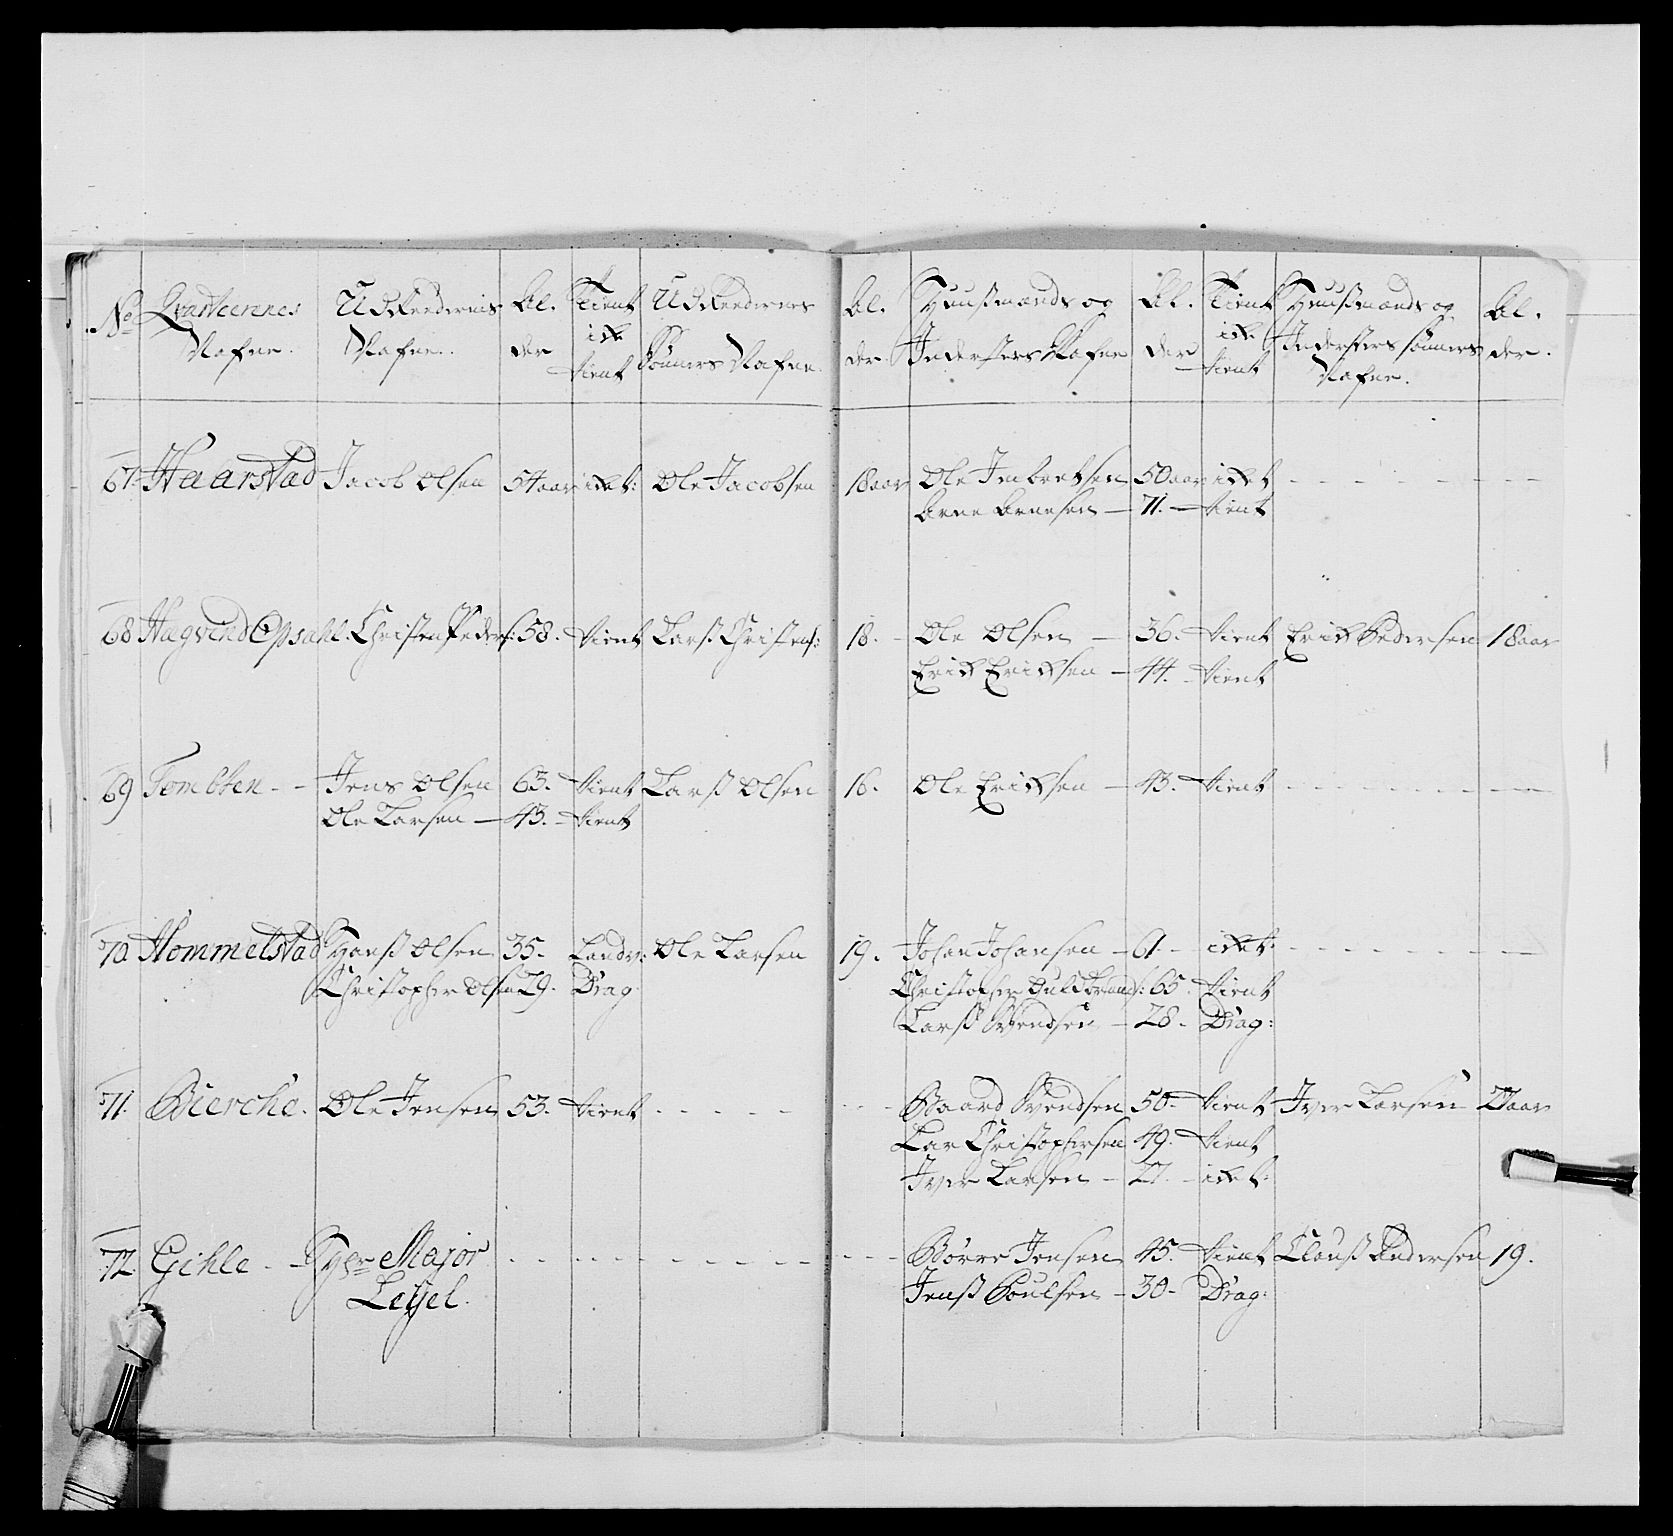 No | Qvarteernes Nafne. | Udreedernis Nafne. | Al. der | Tient ikke tient | Udreedernes Sönners Nafne. | Al. der. | Huusmænds og Indersters Nafne | Al. der | Tient ikke tient | Huusmænds og Indersters sönners Nafne. | Al. der.
67. Haarstad | Jacob Olsen | 54 aar | ikke t: | Ole Jacobsen | 18 aar | Ole Imbretsen | 50 aar | ikke t | - - -
Arne Arnesen — | 71. — | tient
68 Hagvend Opsahl. | Christen Peders: | 58. | tient | Lars Christens: | 18. - | Ole Olsen — | 36. | tient | Erich Pedersen | 18 aar
Erich Erichsen — | 44. - | tient
69 Tombten - - | Jens Olsen | 63. | tient | Lars Olsen | 16. | Ole Erichsen — | 43. | tient | - - -
Ole Larsen — | 43. - | tient
70. Hommelstad | Hans Olsen | 35. | Landv: | Ole Larsen | 19. | Johan Johansen — | 61. - | ikke t: | - - -
Christopher Olsen | 29. | Drag: | Christopher Guldbrands: | 65. | tient
Lars Svendsen — | 28. | Drag:
71. Bierche. | Ole Jensen | 53. | tient | - - - | Baard Svendsen | 50. | tient | Iver Larsen | 27 aar
Lar Christophersen | 49. | tient
Iver Larsen — | 27. - | ikke t:
72. Gihle - - | Hr Major | - - - | Börre Jensen | 45. | tient | Claus Andersen | 19.
Leyel. | Jens Poulsen — | 30. | Drag: